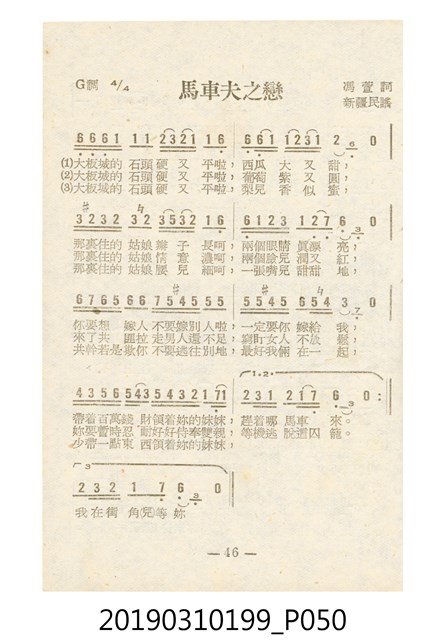 馬車夫之戀
G調 4/4
馮萱詞
新疆民謠
6661 11 2321 16 661 1231 2 6 0
(1)大板城的 石頭硬又 平啦，西瓜 大又 甜，
(2)大板城的 石頭硬又 平啦，葡萄 紫又 圓，
(3)大板城的 石頭硬又 平啦，梨兒 香似 蜜，
3232 32 3532 16 6123 127 6 3 0
那裏住的 姑娘辮子 長呵，兩個眼睛 真漂 亮，
那裏住的 姑娘情意 濃呵，兩個臉兒 潤又 紅，
那裏住的 姑娘腰兒 細呵，一張嘴兒 甜甜 地，
6765 667 54555 5545 654 3 7
你要想 嫁人 不要嫁別人啦，一定要你 嫁給 我，
來了共 走男人還不足，女人不放 鬆，
共幹若是欺你不要逃往別地，最好我倆 在一 起，
4356 543 5435 2171 231 217 6 0:
帶着百萬錢 財領着妳的妹妹，趕着哪 馬車 來。
妳要暫時忍耐好好侍奉雙親，等機逃 脫這囚 籠。
少帶一點東西領着妳的妹妹，
232 12 317 6 3 0
我在街 角(兒)等 妳
— 46 —
20190310199_P050